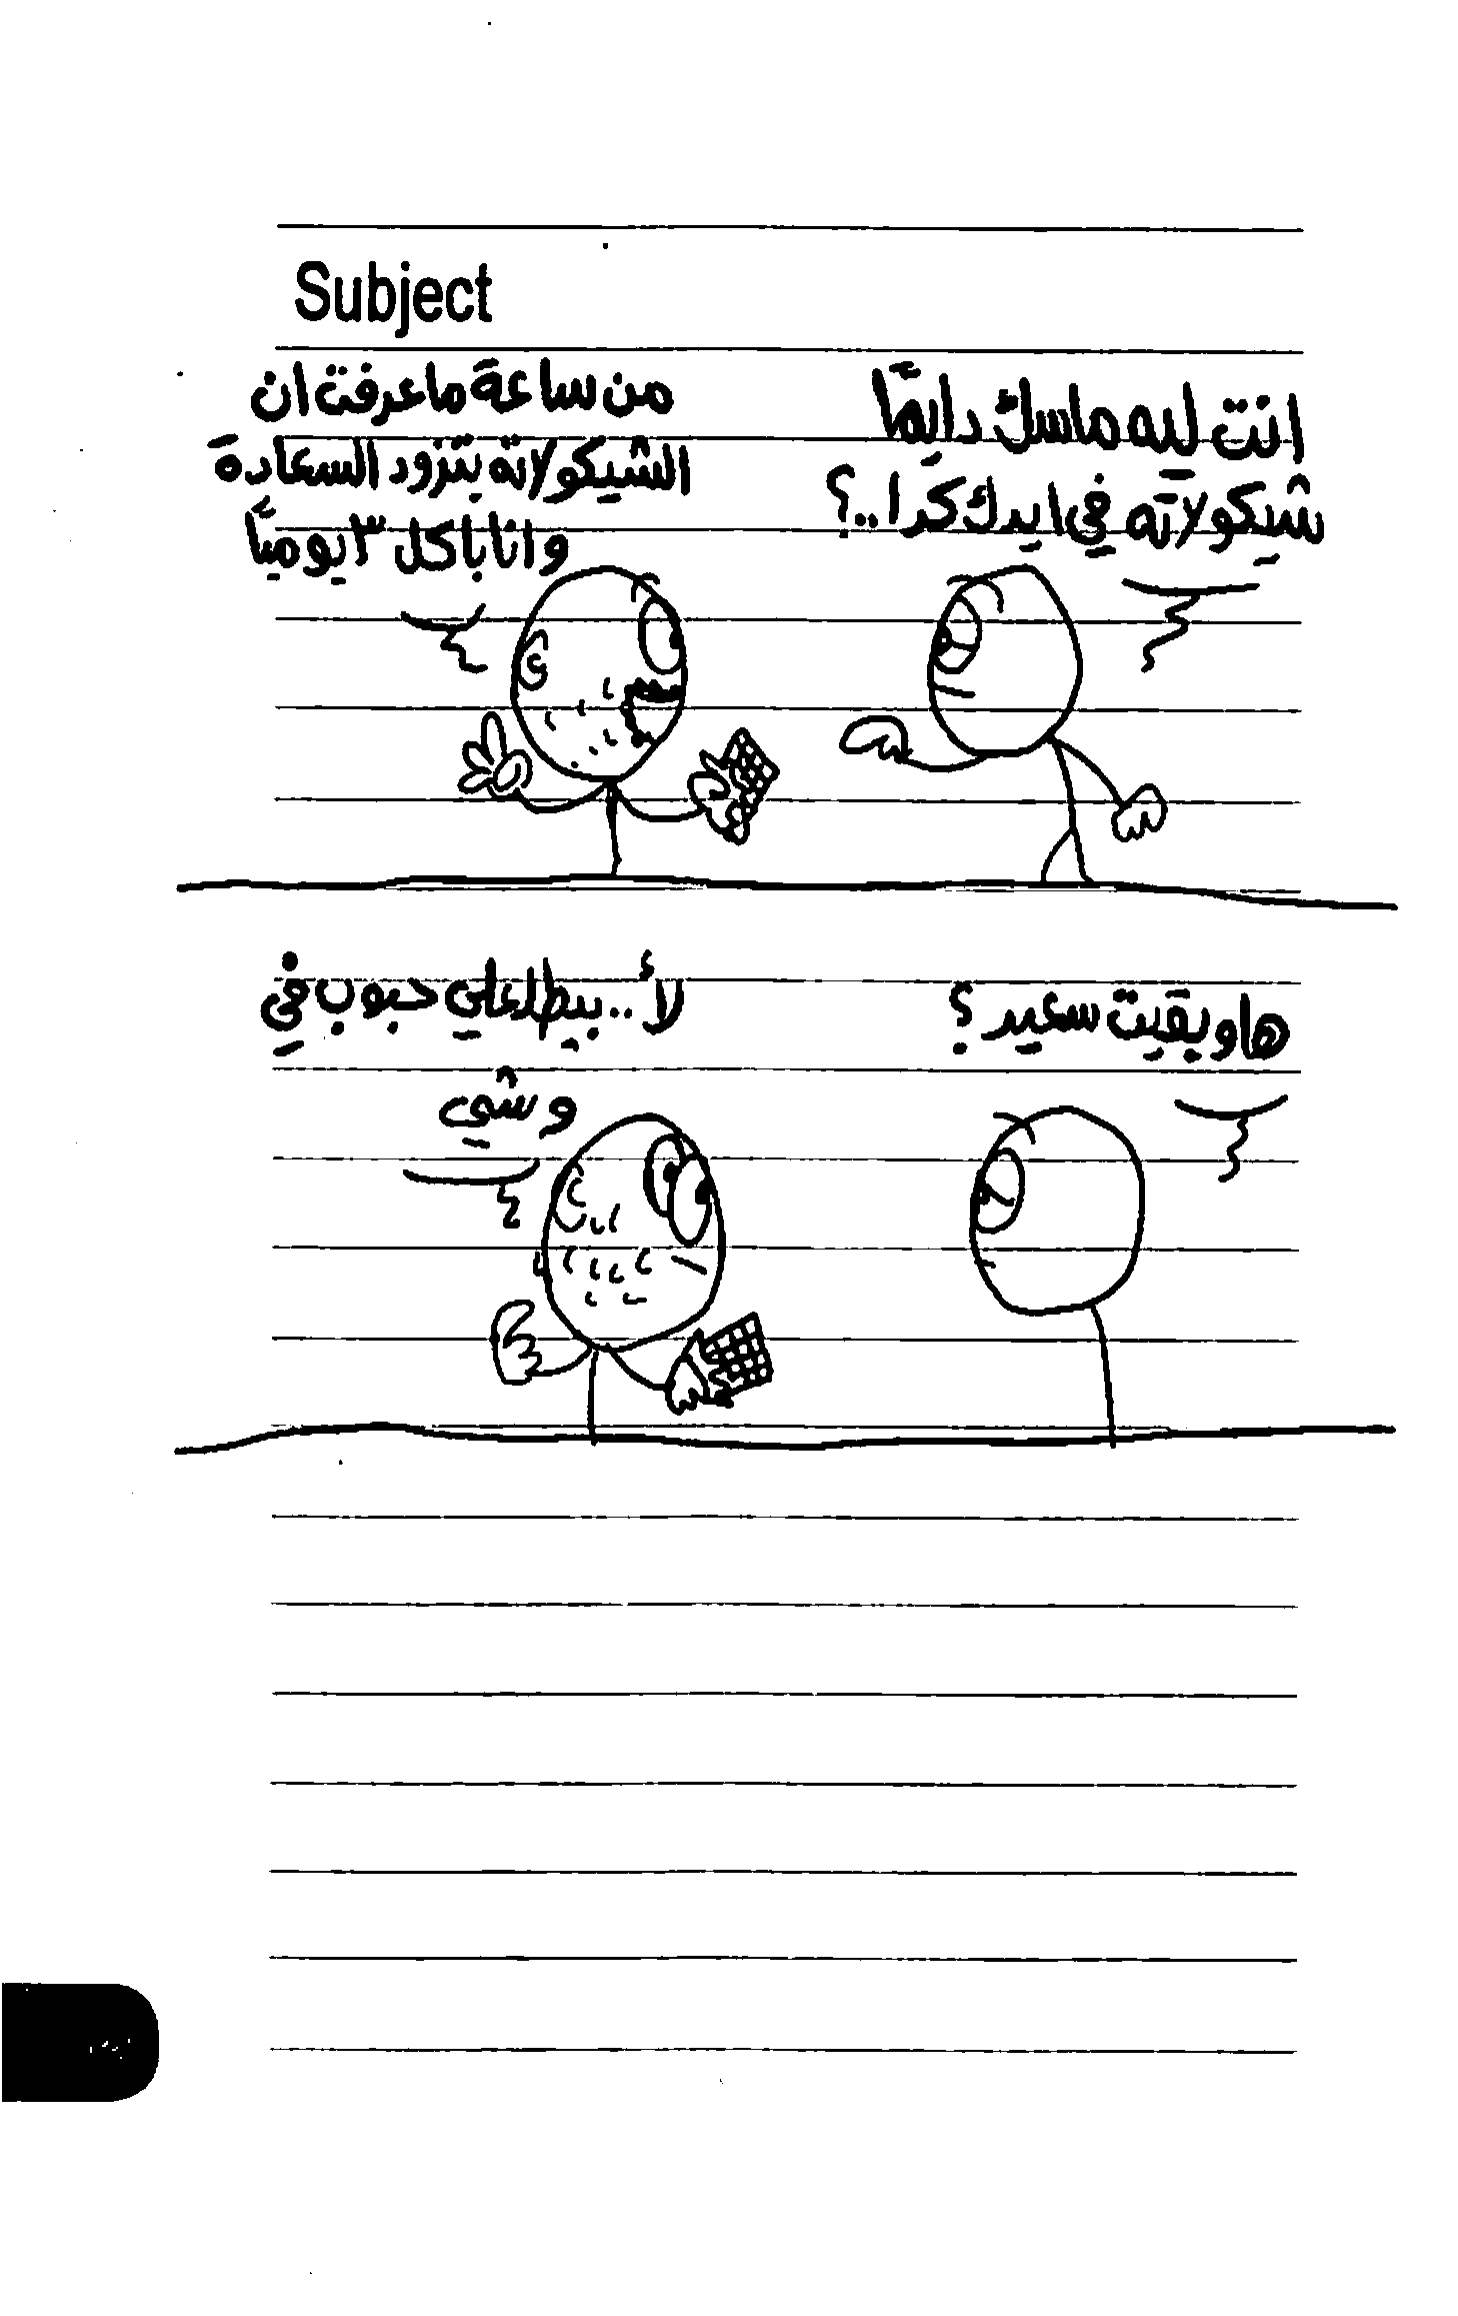 Subject
انت ليه ماسك دايمًا
شيكولاته في ايدك كدا..؟
من ساعة ما عرفت ان
الشيكولاته بتزود السعادة
وانا باكل ٣ يوميًا
ها وبقيت سعيد؟
لأ.. بيطلعلي حبوب في
وشي